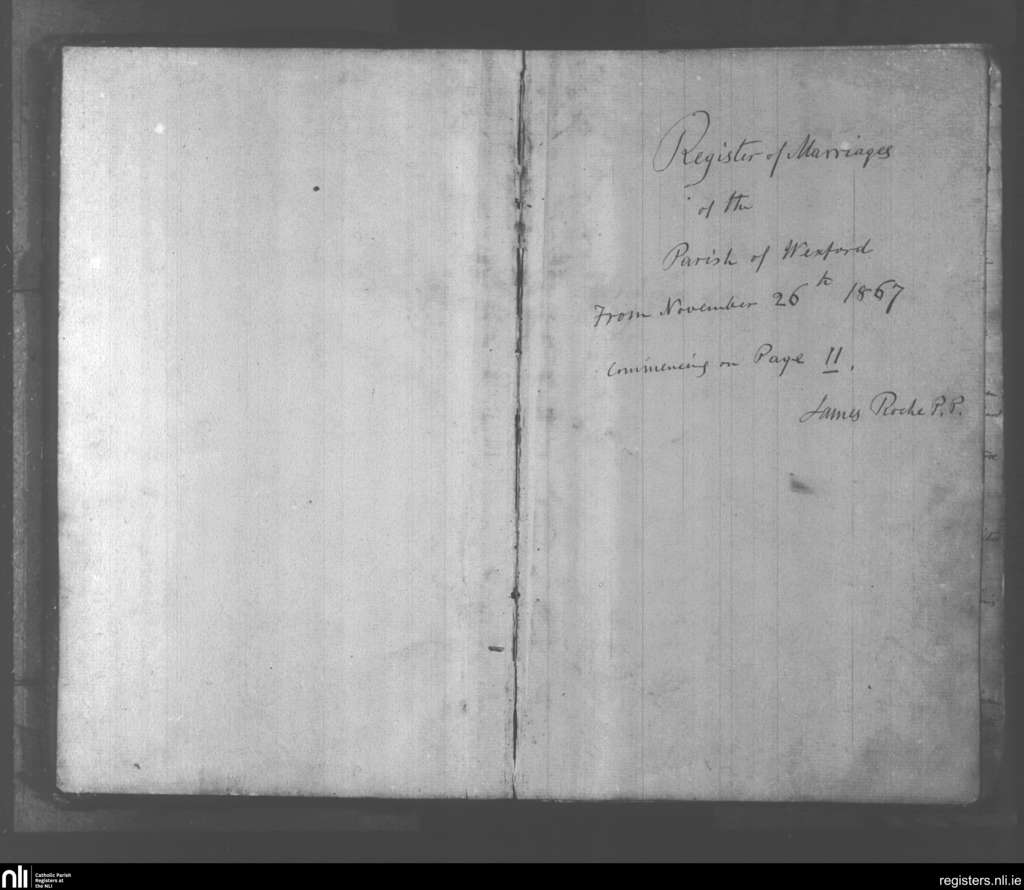 Register of Marriages
of the
Parish of Wexford
From November 26th 1867
Commencing on Page 11.
James Roche P.P.
nli
Catholic Parish
Registers at
the NLI
registers.nli.ie